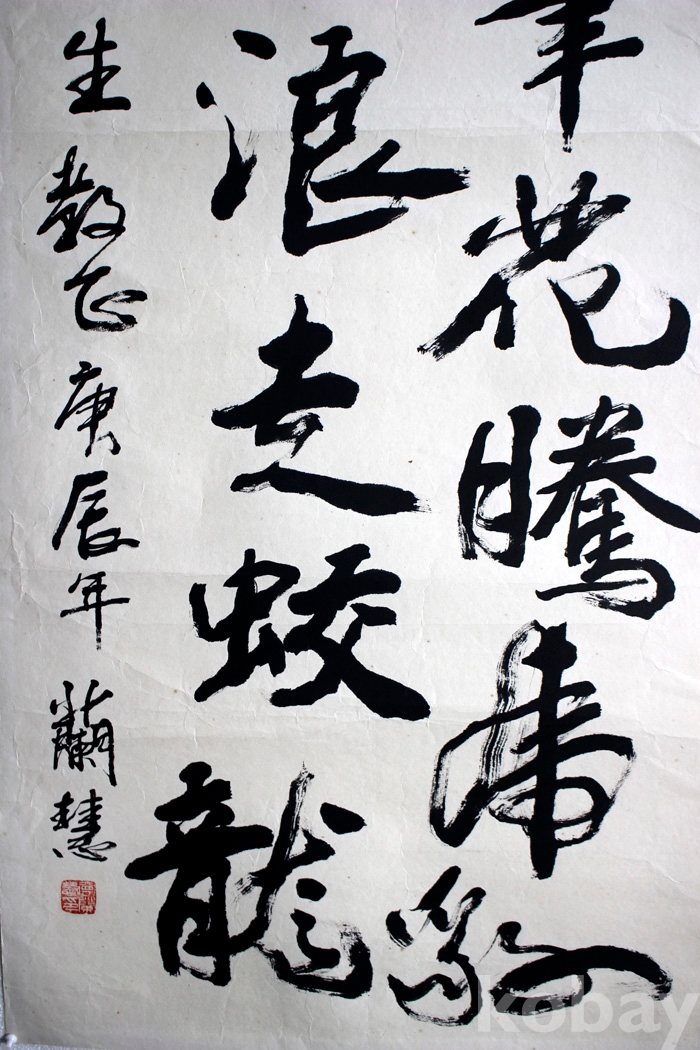 花騰虎豹
浪走蛟龍
生教正庚辰年蘭慧
kobay